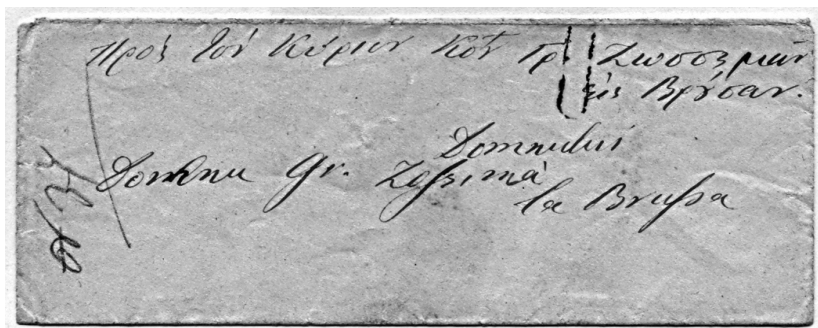 Πρὸς τὸν Κύριον Κοτ Γρ. Ζωσσιμάν
εἰς Βρύσαν.
Domnului
Domnu Gr. Zossimà
la Brussa